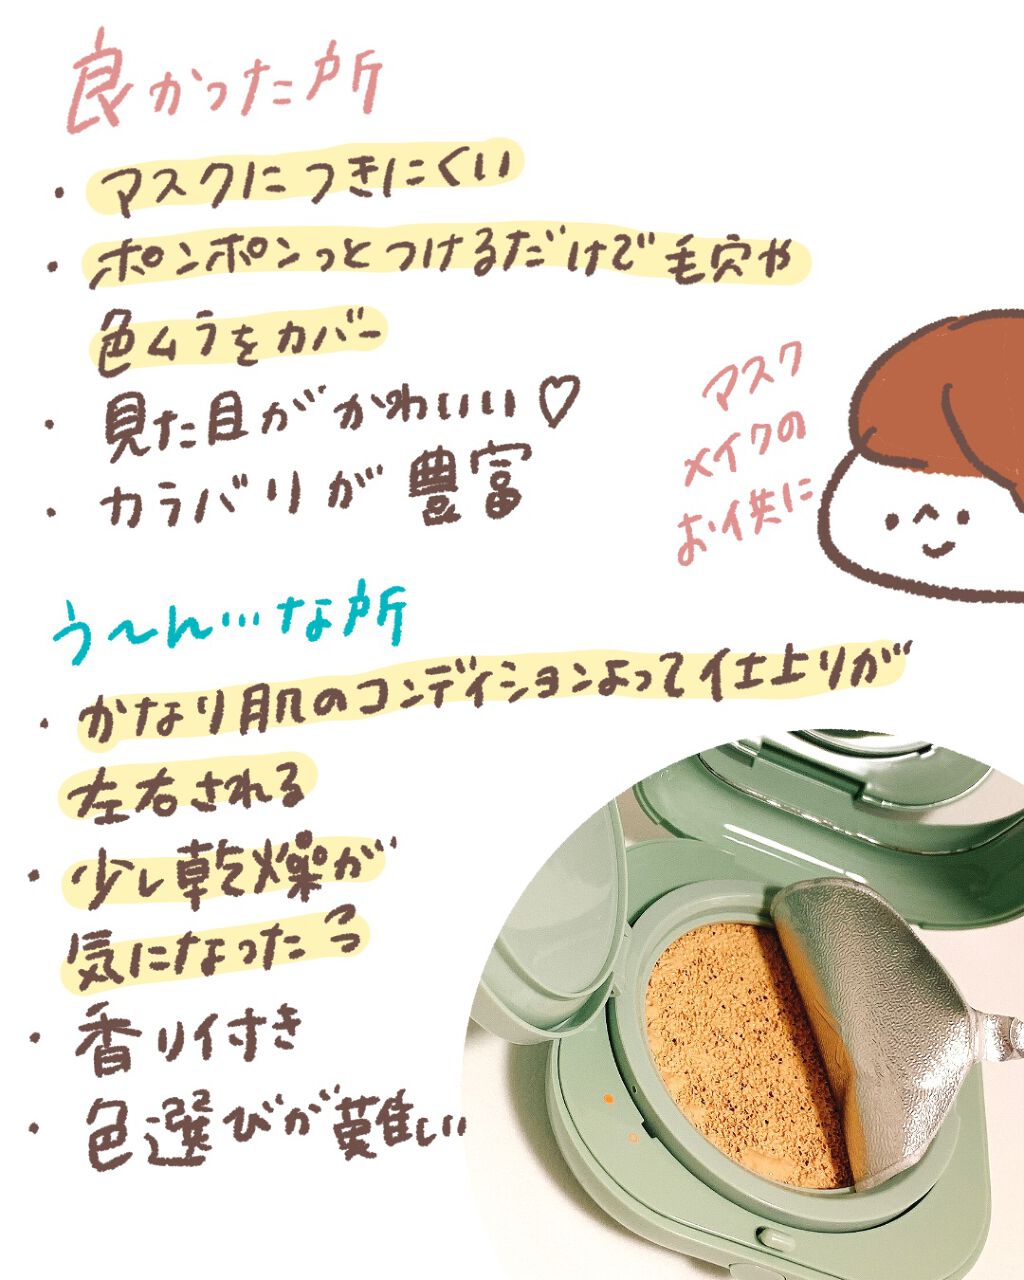 良かった所
・マスクにつきにくい
・ポンポンっとつけるだけで毛穴や
色ムラをカバー
・見た目がかわいい♡
・カラバリが豊富
マスク
メイクの
お供に
う〜ん…な所
・かなり肌のコンディションよって仕上りが
左右される
・少し乾燥が
気になったっ
・香り付き
・色選びが難しい